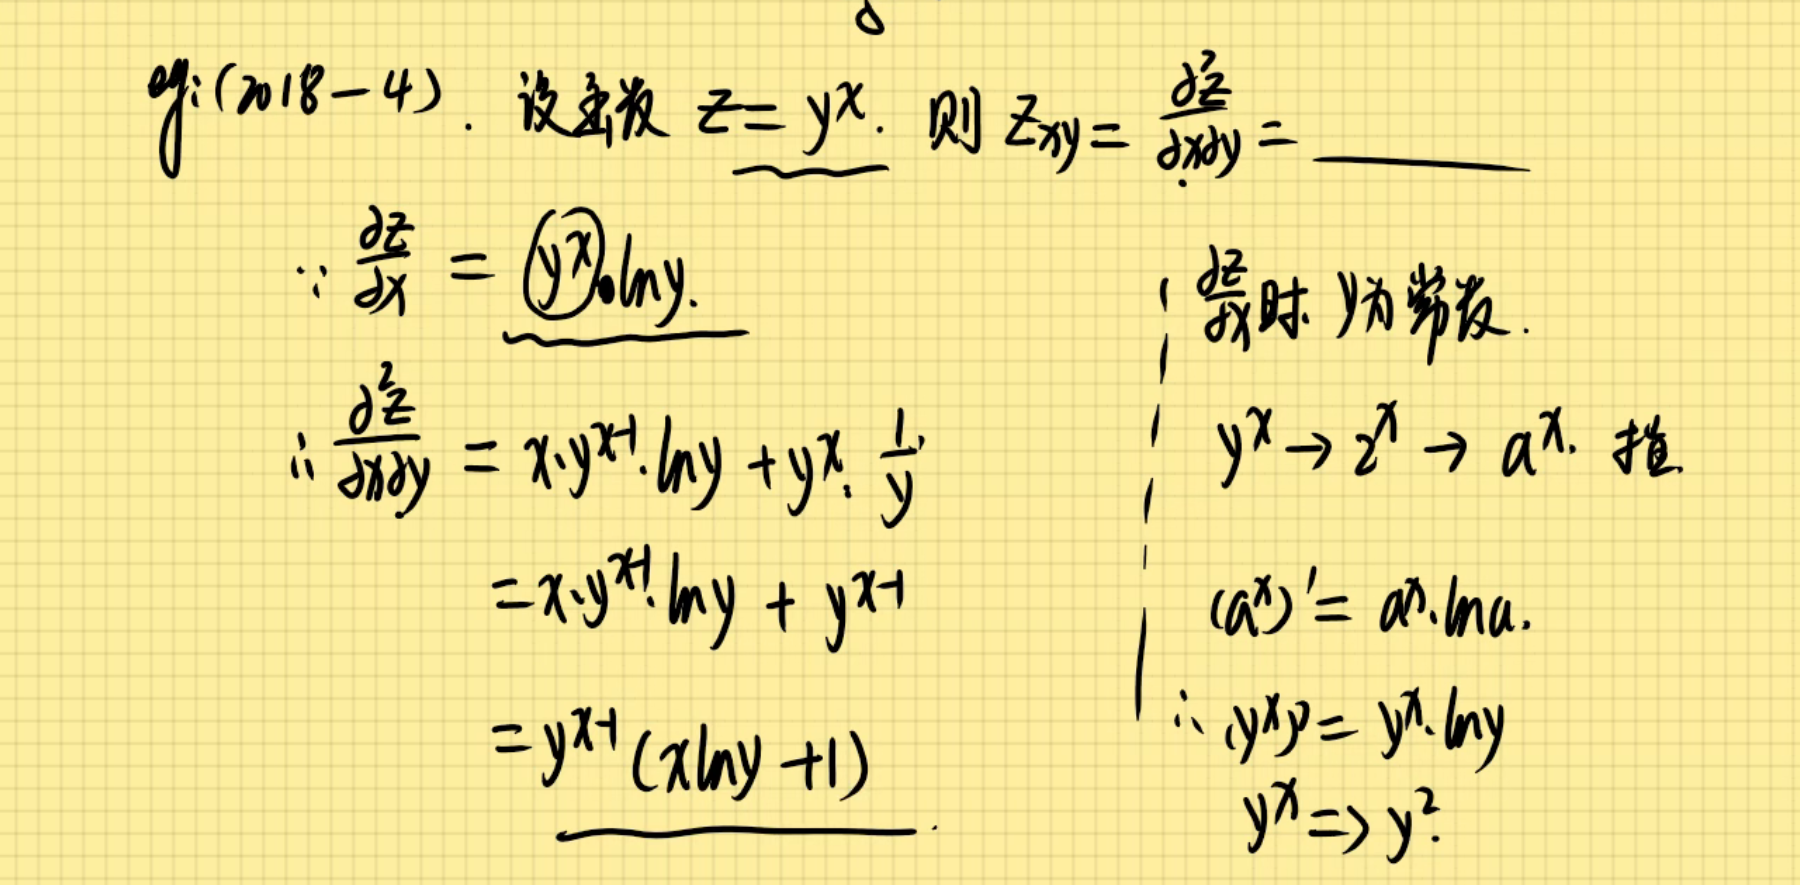 eg:(2018-4). 设函数 z = y^x. 则 z_xy = ∂²z/∂x∂y = ____
∵ ∂z/∂x = y^x·lny.
∴ ∂²z/∂x∂y = x·y^(x-1)·lny + y^x·1/y
= x·y^(x-1)·lny + y^(x-1)
= y^(x-1)(xlny+1)
∂z/∂x时 y为常数.
y^x → 2^x → a^x. 指
(a^x)' = a^x·lna.
∴ (y^x)' = y^x·lny
y^x => y².